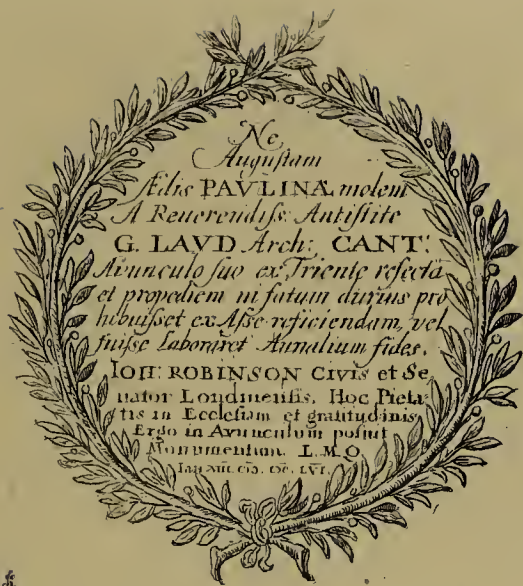 Ne
Augustam
Ædis PAVLINÆ molem
A Reuerendiss: Antistite
G. LAVD Arch: CANT:
Avunculo suo ex Triente refectā
et propediem ni fatum durius pro
hibuisset ex Asse reficiendam, vel
fuisse laboraret Annalium fides.
IOH: ROBINSON Civis et Se,
nator Londinensis, Hoc Pieta,
tis in Ecclesiam et gratitudinis
Ergo in Avunculum posuit
Monumentum. L.M.Q.